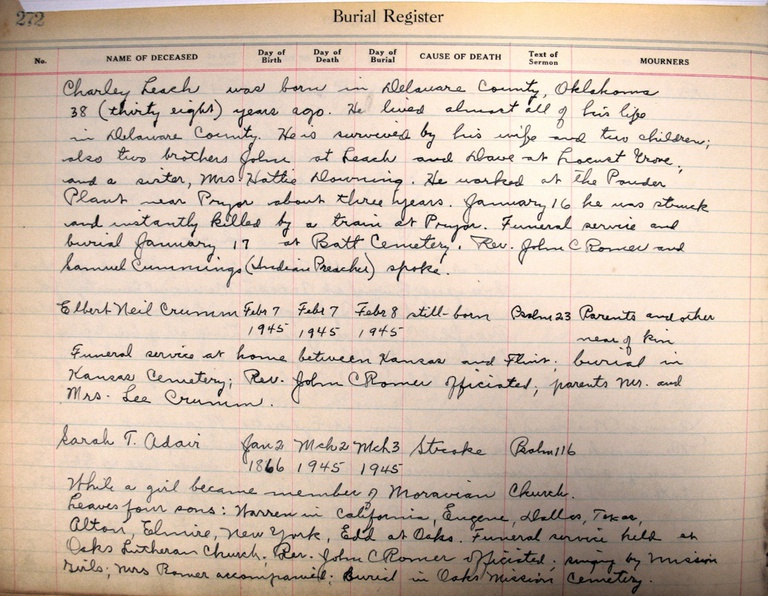 272
Burial Register
No. NAME OF DECEASED Day of Birth Day of Death Day of Burial CAUSE OF DEATH Text of Sermon MOURNERS
Charley Leach was born in Delaware County, Oklahoma
38 (thirty eight) years ago. He lived almost all of his life
in Delaware County. He is survived by his wife and two children;
also two brothers John at Leach and Dave at Locust Grove;
and a sister, Mrs Hattie Downing. He worked at the Powder
Plant near Pryor about three years. January 16 he was struck
and instantly killed by a train at Pryor. Funeral service and
burial January 17 at Batt Cemetery. Rev. John C Romer and
Samuel Cummings (Indian Preacher) spoke.
Elbert Neil Crumm Febr 7 Febr 7 Febr 8 still-born Psalm 23 Parents and other
1945 1945 1945 near of kin
Funeral service at home between Kansas and Flint; burial in
Kansas Cemetery; Rev. John C Romer officiated; parents Mr. and
Mrs. Lee Crumm.
Sarah T. Adair Jan 2 Mch 2 Mch 3 Stroke Psalm 116
1866 1945 1945
While a girl became member of Moravian Church.
Leaves four sons: Warren in California, Eugene, Dallas, Texas,
Alton, Elmire, New York, Edd at Oaks. Funeral service held at
Oaks Lutheran Church, Rev. John C Romer officiated; singing by Mission
Girls; Mrs Romer accompanied; Burial in Oaks Mission Cemetery.